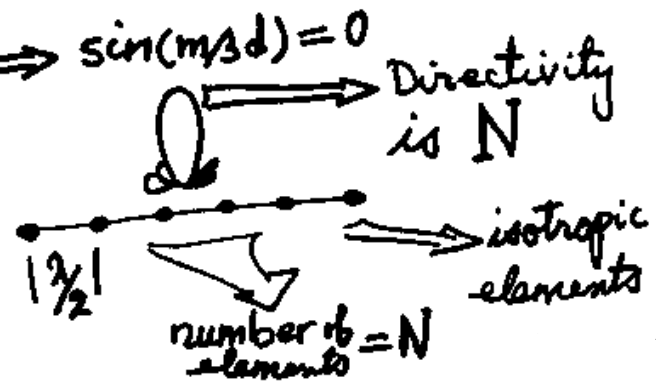 ⇒ sin(mβd) = 0
Directivity
is N
|λ/2|
isotropic
elements
number of
elements = N